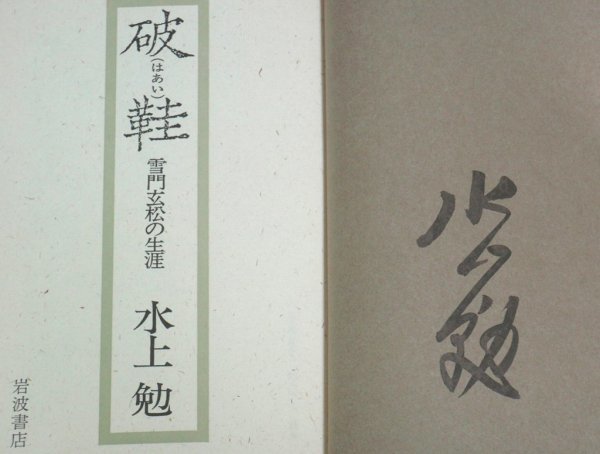 破鞋
(はあい)
雪門玄松の生涯
水上勉
岩波書店
水上勉